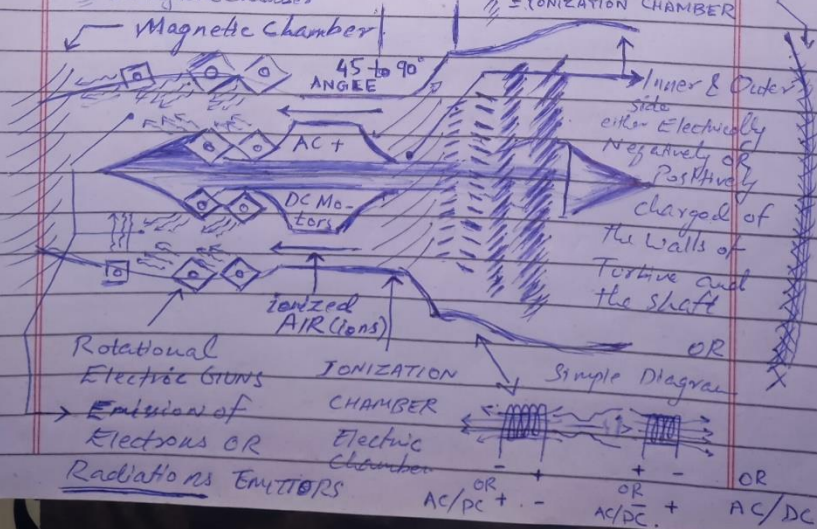 IONIZATION CHAMBER
Magnetic Chamber
45 to 90°
ANGEE
AC +
DC Mo-
tors
Inner & Outer
side
either Electrically
Negatively OR
Positively
charged of
the walls of
Turbine and
the shaft
OR
ionized
AIR (ions)
Rotational
Electric GUNS
Emission of
Electrons OR
Radiations EMITTORS
IONIZATION
CHAMBER
Electric
Chamber
Simple Diagram
- +
OR
AC/DC + -
+ -
OR
AC/DC - +
OR
AC/DC